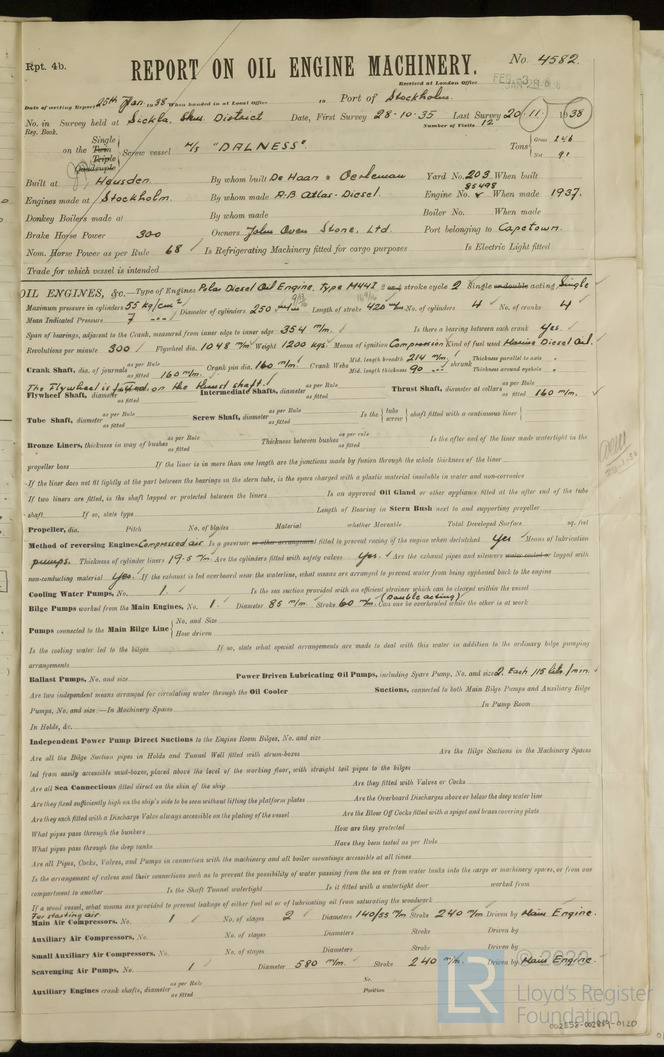 Rpt. 4b.
REPORT ON OIL ENGINE MACHINERY.
No. 4582.
Received at London Office
Date of writing Report 25th Jan. 1938 When handed in at Local Office 19 Port of Stockholm.
No. in Survey held at Sickla, Skur. District Date, First Survey 28-10-35 Last Survey 20-11-1938
Reg. Book. Number of Visits 12
Single
on the Twin Screw vessel M/S "DALNESS". Tons Gross 246
Triple
Quadruple Net 91
Built at Heusden By whom built De Haan & Oerleman Yard No. 203 When built
Engines made at Stockholm. By whom made A.B Atlas-Diesel. Engine No. 85498 When made 1937.
Donkey Boilers made at By whom made Boiler No. When made
Brake Horse Power 300 Owners John Oven Stone, Ltd. Port belonging to Capetown.
Nom. Horse Power as per Rule 68 Is Refrigerating Machinery fitted for cargo purposes Is Electric Light fitted
Trade for which vessel is intended
OIL ENGINES, &c. Type of Engines Polar Diesel Oil Engine, Type M44I 2 or 4 stroke cycle 2 Single or double acting, Single
Maximum pressure in cylinders 55 kg/cm² Diameter of cylinders 250 m/m Length of stroke 420 m/m No. of cylinders 4 No. of cranks 4
Mean Indicated Pressure 7
Span of bearings, adjacent to the Crank, measured from inner edge to inner edge 354 m/m. Is there a bearing between each crank Yes.
Revolutions per minute 300 Flywheel dia. 1048 m/m Weight 1200 kgs. Means of ignition Compression Kind of fuel used Marine Diesel Oil.
Crank Shaft, dia. of journals as per Rule as fitted 160 m/m. Crank pin dia. 160 m/m. Crank Webs Mid. length breadth 214 m/m. Mid. length thickness 90 shrunk Thickness parallel to axis Thickness around eyehole
The Flywheel is fitted on the thrust shaft.
Flywheel Shaft, diameter as per Rule as fitted Intermediate Shafts, diameter as per Rule as fitted Thrust Shaft, diameter at collars as per Rule as fitted 160 m/m.
Tube Shaft, diameter as per Rule as fitted Screw Shaft, diameter as per Rule as fitted Is the { tube screw } shaft fitted with a continuous liner {
Bronze Liners, thickness in way of bushes as per Rule as fitted Thickness between bushes as per rule as fitted Is the after end of the liner made watertight in the
propeller boss If the liner is in more than one length are the junctions made by fusion through the whole thickness of the liner
If the liner does not fit tightly at the part between the bearings in the stern tube, is the space charged with a plastic material insoluble in water and non-corrosive
If two liners are fitted, is the shaft lapped or protected between the liners Is an approved Oil Gland or other appliance fitted at the after end of the tube
shaft If so, state type Length of Bearing in Stern Bush next to and supporting propeller
Propeller, dia. Pitch No. of blades Material whether Moveable Total Developed Surface sq. feet
Method of reversing Engines Compressed air Is a governor or other arrangement fitted to prevent racing of the engine when declutched Yes Means of lubrication
pumps. Thickness of cylinder liners 19.5 m/m. Are the cylinders fitted with safety valves Yes. Are the exhaust pipes and silencers water cooled or lagged with
non-conducting material Yes. If the exhaust is led overboard near the waterline, what means are arranged to prevent water from being syphoned back to the engine
Cooling Water Pumps, No. 1. Is the sea suction provided with an efficient strainer which can be cleared within the vessel
Bilge Pumps worked from the Main Engines, No. 1. Diameter 85 m/m Stroke 60 m/m. (Double acting) Can one be overhauled while the other is at work
Pumps connected to the Main Bilge Line { No. and Size
How driven
Is the cooling water led to the bilges If so, state what special arrangements are made to deal with this water in addition to the ordinary bilge pumping
arrangements
Ballast Pumps, No. and size Power Driven Lubricating Oil Pumps, including Spare Pump, No. and size 2. Each 115 lit./min.
Are two independent means arranged for circulating water through the Oil Cooler Suctions, connected to both Main Bilge Pumps and Auxiliary Bilge
Pumps, No. and size:—In Machinery Spaces In Pump Room
In Holds, &c.
Independent Power Pump Direct Suctions to the Engine Room Bilges, No. and size
Are all the Bilge Suction pipes in Holds and Tunnel Well fitted with strum-boxes Are the Bilge Suctions in the Machinery Spaces
led from easily accessible mud-boxes, placed above the level of the working floor, with straight tail pipes to the bilges
Are all Sea Connections fitted direct on the skin of the ship Are they fitted with Valves or Cocks
Are they fixed sufficiently high on the ship's side to be seen without lifting the platform plates Are the Overboard Discharges above or below the deep water line
Are they each fitted with a Discharge Valve always accessible on the plating of the vessel Are the Blow Off Cocks fitted with a spigot and brass covering plate
What pipes pass through the bunkers How are they protected
What pipes pass through the deep tanks Have they been tested as per Rule
Are all Pipes, Cocks, Valves, and Pumps in connection with the machinery and all boiler mountings accessible at all times
Is the arrangement of valves and their connections such as to prevent the possibility of water passing from the sea or from water tanks into the cargo or machinery spaces, or from one
compartment to another Is the Shaft Tunnel watertight Is it fitted with a watertight door worked from
If a wood vessel, what means are provided to prevent leakage of either fuel oil or of lubricating oil from saturating the woodwork
For starting air
Main Air Compressors, No. 1 No. of stages 2 Diameters 140/55 m/m Stroke 240 m/m. Driven by Main Engine.
Auxiliary Air Compressors, No. No. of stages Diameters Stroke Driven by
Small Auxiliary Air Compressors, No. No. of stages Diameters Stroke Driven by
Scavenging Air Pumps, No. 1 Diameter 580 m/m. Stroke 240 m/m. Driven by Main Engine.
Auxiliary Engines crank shafts, diameter as per Rule as fitted No. Position
© 2020
LR
Lloyd's Register
Foundation
002858-002869-0120